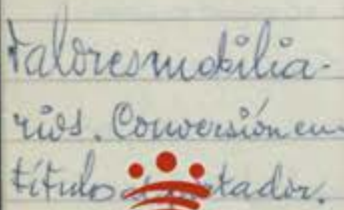 Valores mobilia-
rios. Conversión en
títulos al portador.